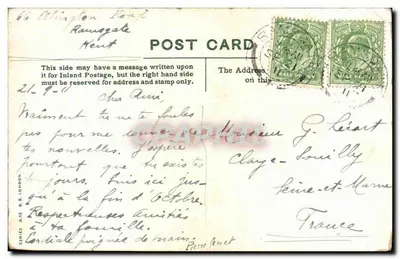 66 Alington Road
Ramsgate
Kent
POST CARD
This side may have a message written upon
it for Inland Postage, but the right hand side
must be reserved for address and stamp only.
The Address
on this
21-9-11
Cher Ami,
Vraiment tu ne te foules
pas pour me donner de
tes nouvelles. J'espère
pourtant que tu existes
toujours. Suis ici jus-
qu'à la fin d'Octobre.
Respectueuses Amitiés
à ta famille.
Cordiale poignée de main.
Monsieur G. Liéart
Claye-Souilly
Seine-et-Marne
France
LONDON